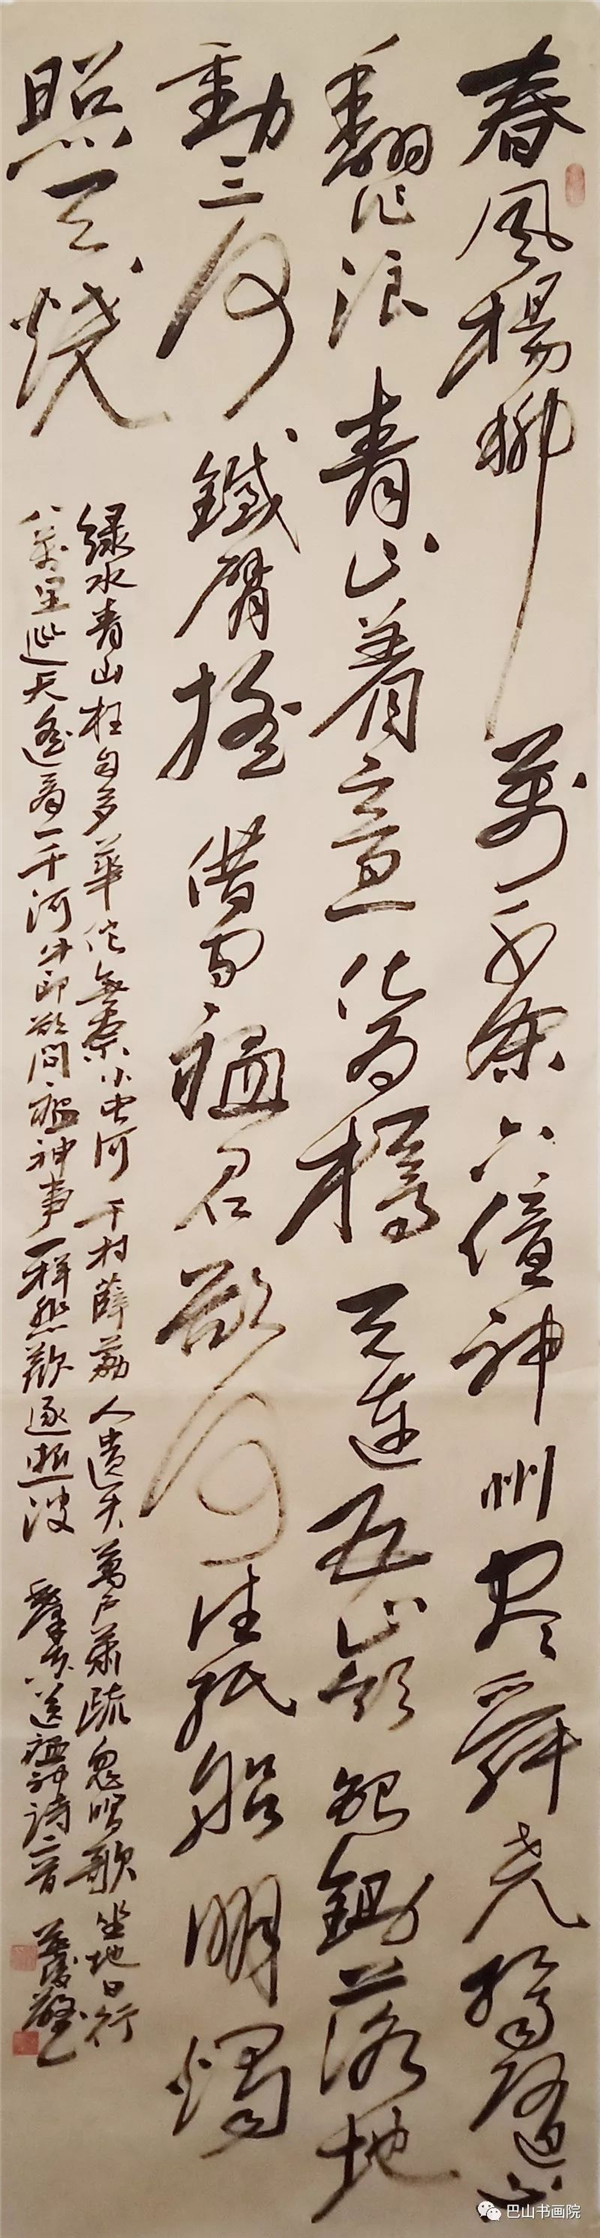 春風楊柳萬千条六億神州尽舜尧紅雨随心
翻作浪青山着意化為橋天連五嶺銀鋤落地
動三河鐵臂摇借问瘟君欲何往纸船明燭
照天燒
绿水青山枉自多華佗無奈小虫何千村薜荔人遗矢萬户萧疏鬼唱歌坐地日行
八萬里巡天遥看一千河牛郎欲问瘟神事一样悲歡逐逝波 送瘟神诗二首
巴山书画院